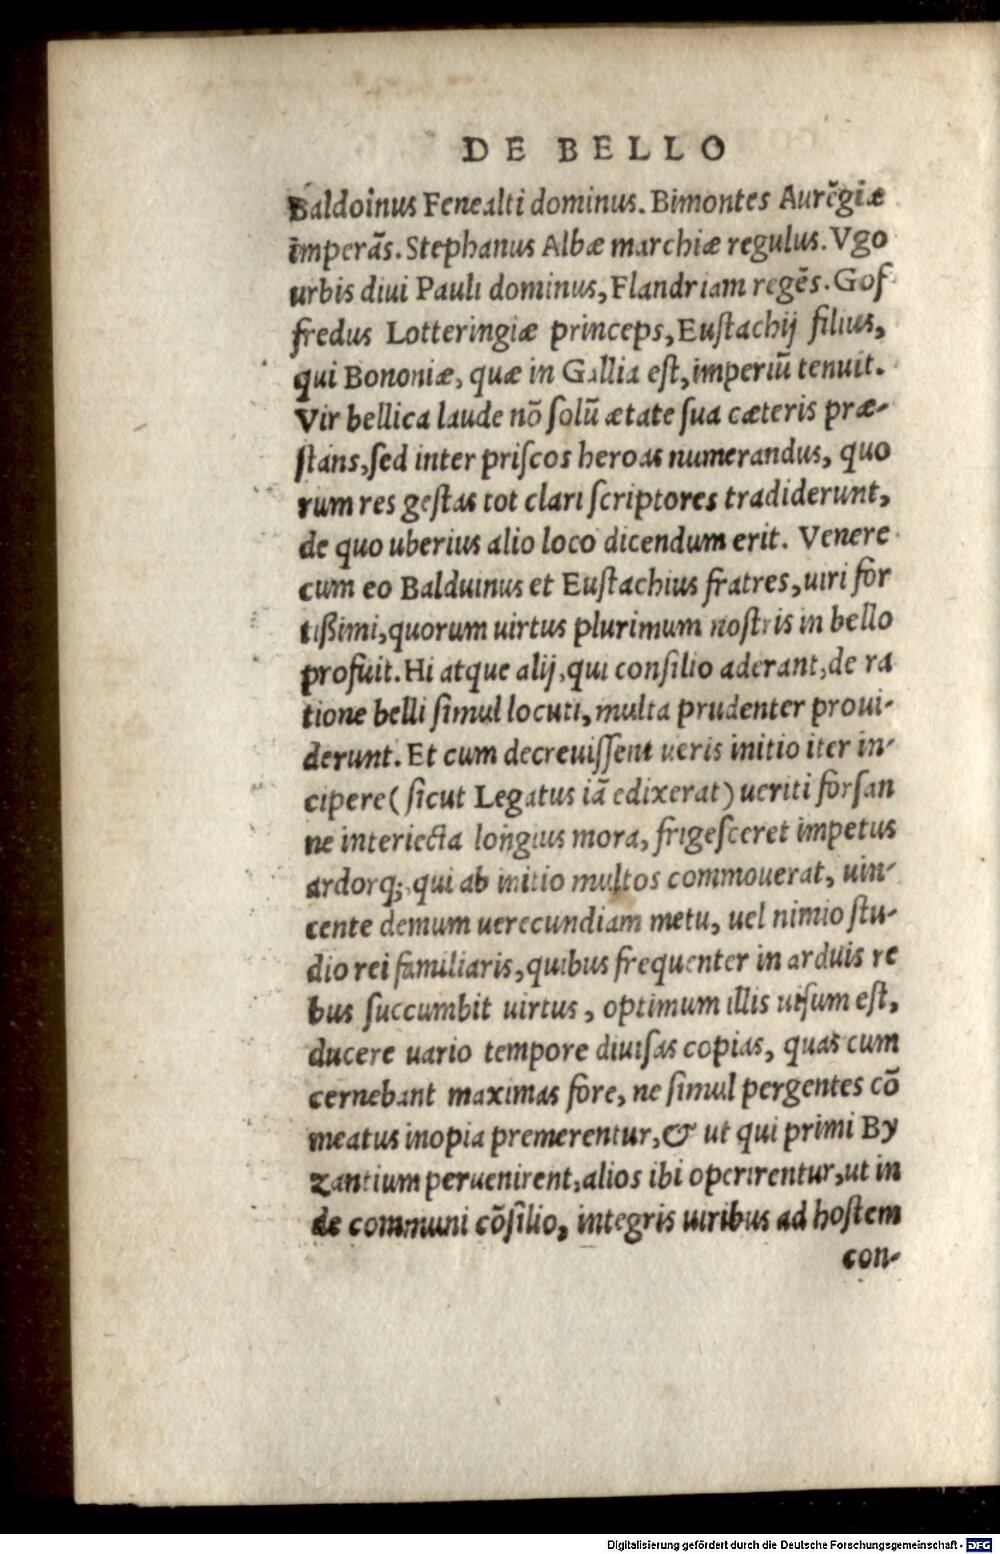 DE BELLO
Baldoinus Fenealti dominus. Bimontes Aurēgiæ
imperãs. Stephanus Albæ marchiæ regulus. Vgo
urbis diui Pauli dominus, Flandriam regẽs. Gof
fredus Lotteringiæ princeps, Euſtachij filius,
qui Bononiæ, quæ in Gallia eſt, imperiũ tenuit.
Vir bellica laude nõ ſolũ ætate ſua cæteris præ-
ſtans, ſed inter priſcos heroas numerandus, quo
rum res geſtas tot clari ſcriptores tradiderunt,
de quo uberius alio loco dicendum erit. Venere
cum eo Balduinus et Euſtachius fratres, uiri for
tißimi, quorum uirtus plurimum noſtris in bello
profuit. Hi atque alij, qui conſilio aderant, de ra
tione belli ſimul locuti, multa prudenter proui-
derunt. Et cum decreuiſſent ueris initio iter in-
cipere (ſicut Legatus iã edixerat) ueriti forſan
ne interiecta longius mora, frigeſceret impetus
ardorq;, qui ab initio multos commouerat, uin-
cente demum uerecundiam metu, uel nimio ſtu-
dio rei familiaris, quibus frequenter in arduis re
bus ſuccumbit uirtus, optimum illis uiſum eſt,
ducere uario tempore diuiſas copias, quas cum
cernebant maximas fore, ne ſimul pergentes cõ
meatus inopia premerentur, & ut qui primi By
zantium peruenirent, alios ibi operirentur, ut in
de communi cõſilio, integris uiribus ad hoſtem
con-
Digitalisierung gefördert durch die Deutsche Forschungsgemeinschaft - DFG